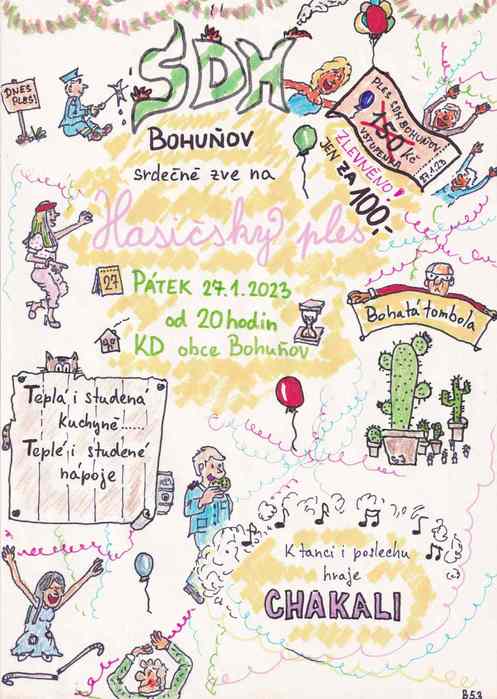 DNES
PLES!
SDH
BOHUŇOV
srdečně zve na
Hasičský ples
PLES SDH BOHUŇOV
150 Kč
VSTUPENKA
27.1.23
ZLEVNĚNO!
JEN ZA 100,-
27
PÁTEK 27.1.2023
od 20 hodin
KD obce Bohuňov
Bohatá tombola
Teplá i studená
kuchyně......
Teplé i studené
nápoje
K tanci i poslechu
hraje
CHAKALI